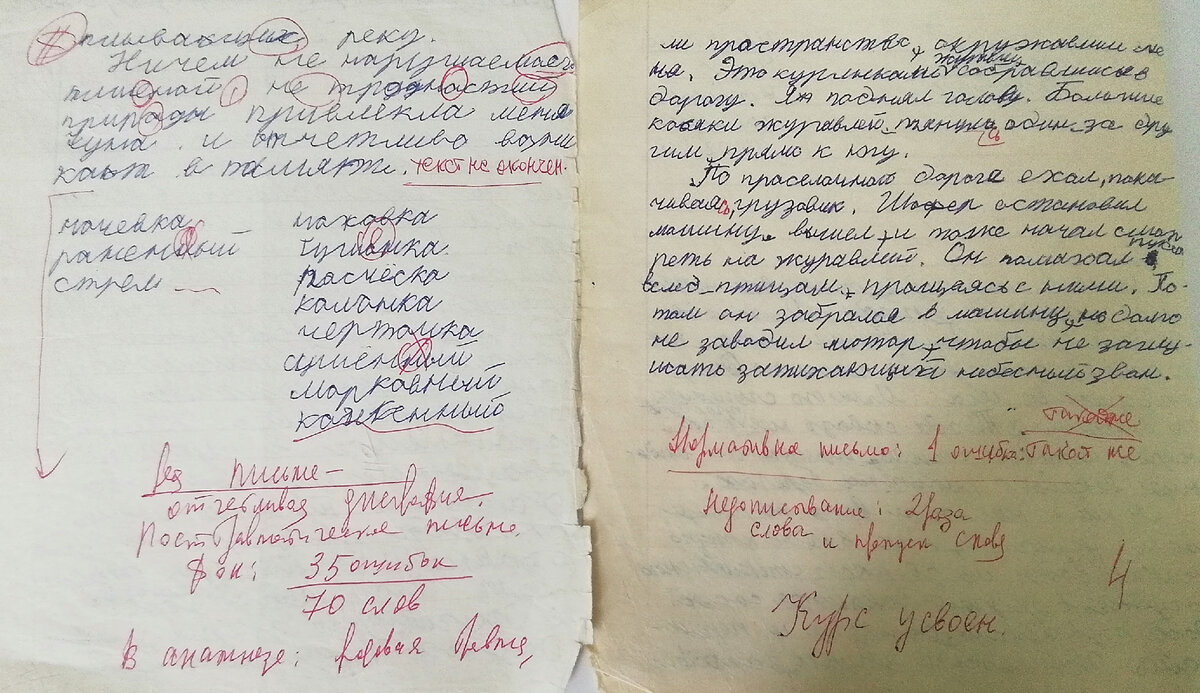 плывающих реку.
Ничем не нарушаемаего
природы привлекла меня
сюда и отчетливо возни
кают в памяти. текст не окончен.
ночевка
раженный
стрем
маховка
расческа
чертошка
морковный
Рез письма –
отчетливая дисграфия.
Посттравматическое письмо.
Фон: 35 ошибок
70 слов
В анамнезе: Родовая травма,
ли пространство, окружавшии ме
ня. Это курлыкали журавли собравшиесь в
дорогу. Ян поднял голову. Большие
косяки журавлей тянулись один за дру
гим прямо к югу.
По проселочной дороге ехал, пока
чиваясь, грузовик. Шофер остановил
машину, вышел и тоже начал смот
реть на журавлей. Он помахал рукой
вслед птицам, прощаясь с ними. По-
том он забрался в машину, но долго
не заводил мотор, чтобы не заглу-
шать затихающий небесный звон.
Нормативное письмо: 1 ошибка: такой же
Недописывание: 2 раза
слова и пропуск слова
4
Курс усвоен.